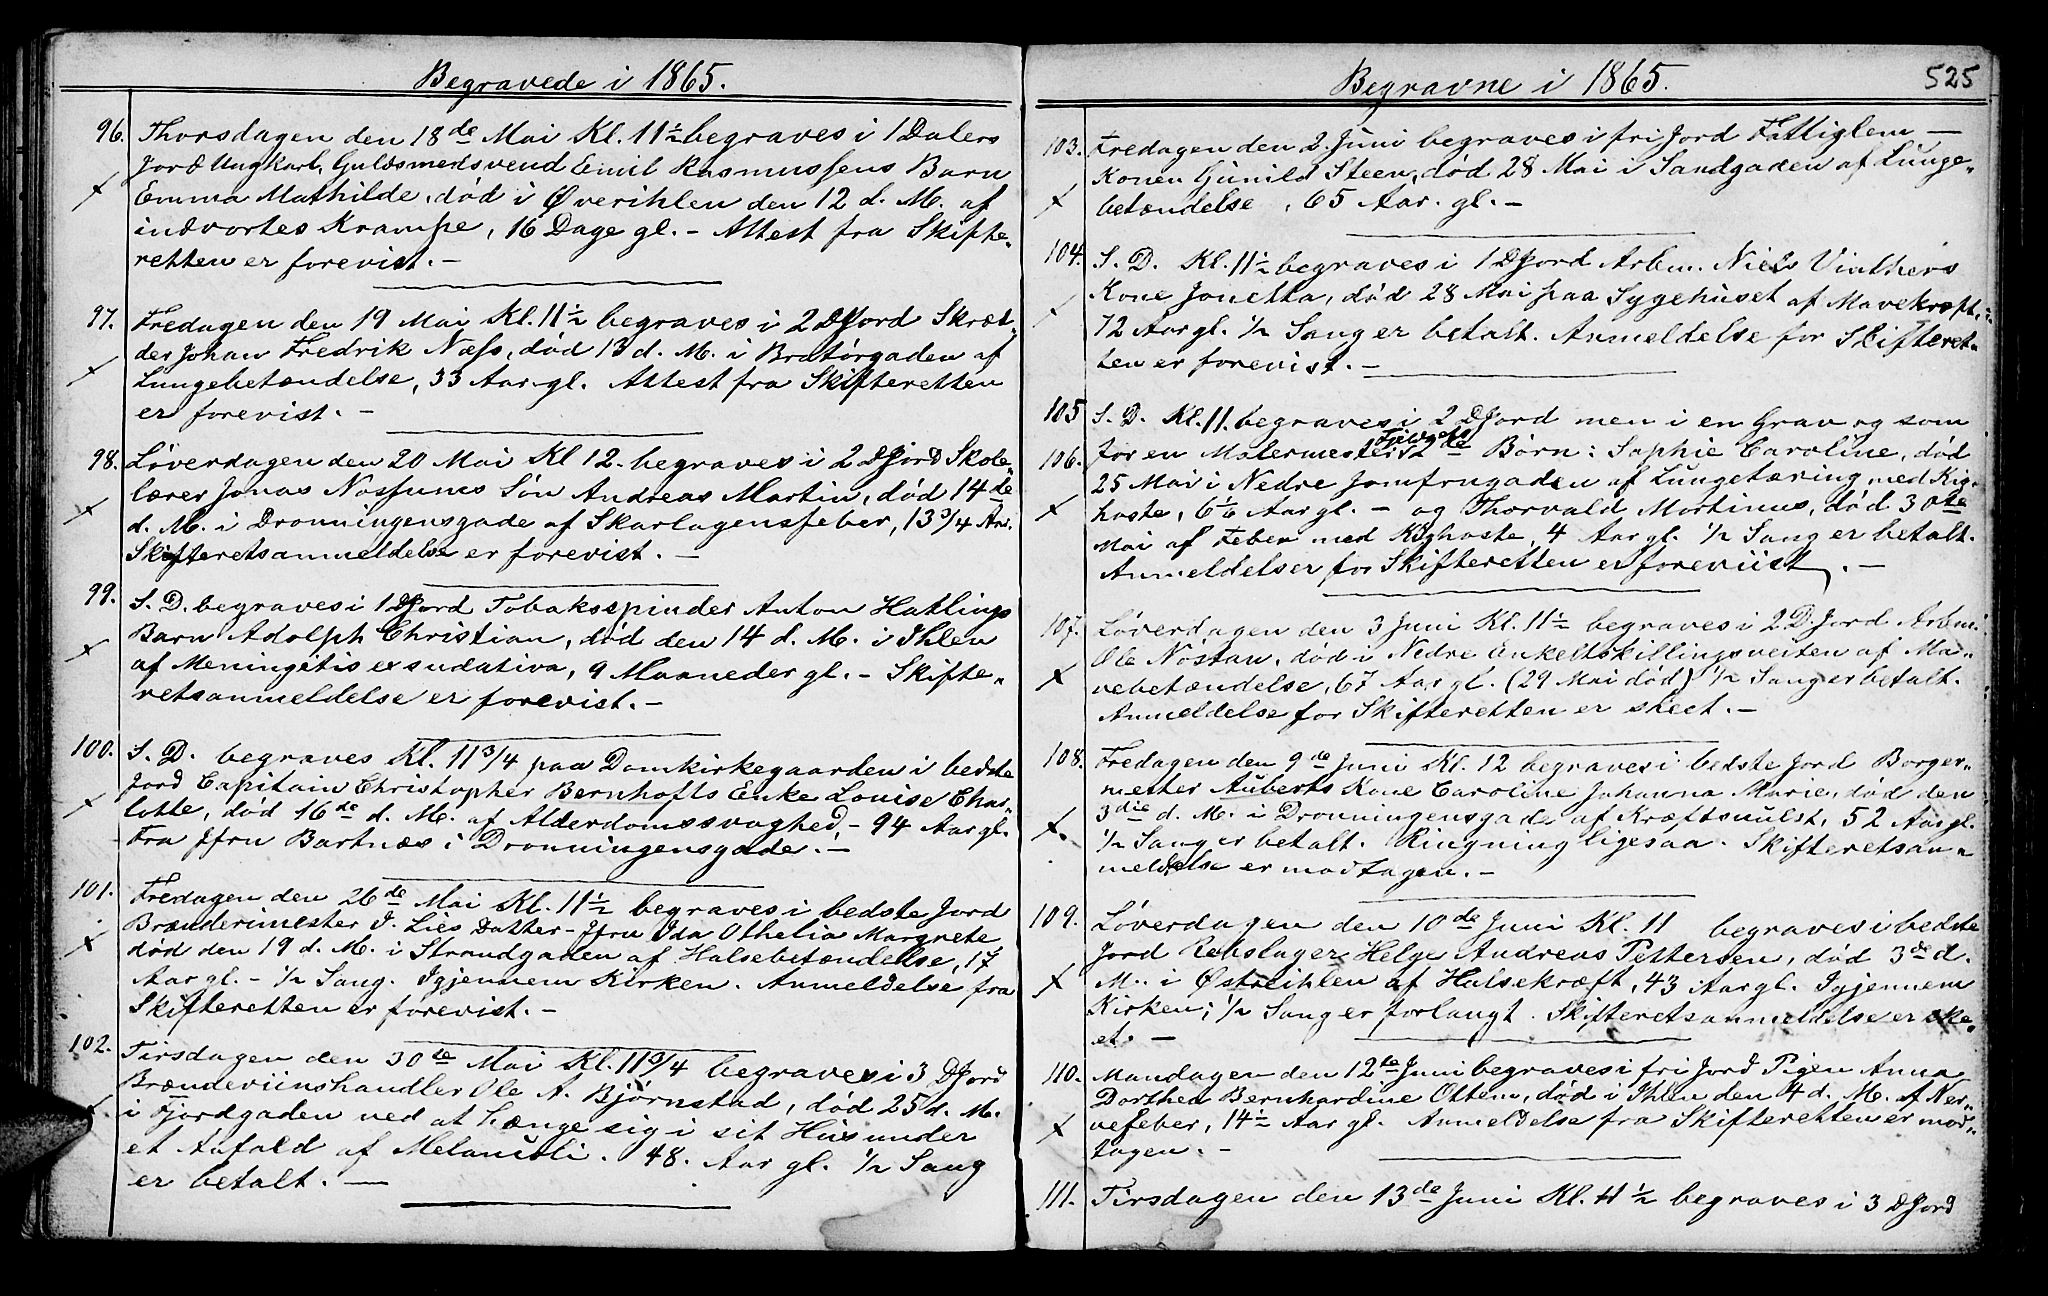 Begravede i 1865.
96. Thorsdagen den 18de Mai Kl. 11½ begraves i 1 Dalers
Jord Ungkarl, Guldsmedsvend Emil Rasmussens Barn
x Emma Mathilde, død i Øverihlen den 12 d. M. af
indvortes Krampe, 16 Dage gl. - Attest fra Skifte„
retten er forevist. -
97. Fredagen den 19 Mai Kl. 11½ begraves i 2 D Jord Skræd„
der Johan Fredrik Næss, død 13 d. M. i Bratørgaden af
x Lungebetændelse, 33 Aar gl. Attest fra Skifteretten
er forevist. -
98. Løverdagen den 20 Mai Kl 12. begraves i 2 D Jord Skole„
lærer Jonas Søn Andreas Martin, død 14de
x d. M. i Dronningensgade af Skarlagensfeber, 13 3/4 Aar.
Skifteretsanmeldelse er forevist. -
99. S. D. begraves i 1 D Jord Tobaksspinder Anton Hatlings
x Barn Adolph Christian, død den 14 d. M. i Ihlen
af Meningitis exsudativa, 9 Maaneder gl. - Skifte„
retsanmeldelse er forevist. -
100. S. D. begraves Kl. 11 3/4 paa Domkirkegaarden i bedste
Jord Capitain Christopher Bernhofts Enke Louise Char„
x lotte, død 16de d. M. af Alderdomssvaghed, - 94 Aar gl.
Fra Jfru Bartnæs i Dronningensgade. -
101. Fredagen den 26de Mai Kl. 11½ begraves i bedste Jord
Brænderimester J. Lies Datter - Jfru Ida Othelia Margrete
x død den 19 d. M. i Strandgaden af Halsebetændelse, 17
Aar gl. - ½ Sang. Igjennem Kirken. Anmeldelse fra
Skifteretten er forevist. -
102. Tirsdagen den 30te Mai Kl. 11 3/4 begraves i 3 D Jord
Brændeviinshandler Ole A. Bjørnstad, død 25 d. M.
x i Fjordgaden ved at hænge sig i sit Huus under
et Anfald af Melancoli. 48. Aar gl. ½ Sang
er betalt. -
Begravne i 1865. 525
103. Fredagen den 2. Juni begraves i fri Jord Fattiglem -
Konen Gunild Steen, død 28 Mai i Sandgaden af Lunge„
x betændelse, 65 Aar. gl. -
104. S. D. Kl. 11½ begraves i 1 D Jord Arbm. Niels Vinthers
x Kone Jonetta, død 28 Mai paa Sygehuset af Mavekræft,
72 Aar gl. ½ Sang er betalt. Anmeldelse for Skifteret„
ten er forevist. -
105 S. D. Kl. 11. begraves i 2 D Jord men i en Grav og som
106. for en Malermester 2de Børn: Sophie Caroline, død
25 Mai i Nedre Jomfrugaden af Lungetæring med Kig„
x hoste, 6 1/6 Aar gl. - og Thorvald Martinus, død 30te
Mai af Feber med Kighoste, 4 Aar gl. ½ Sang er betalt.
Anmeldelser for Skifteretten er foreviist. -
107. Løverdagen den 3 Juni Kl. 11½ begraves i 2 D. Jord Arbm.
Ole Nostan, død i Nedre Enkeltskillingsveiten af Ma„
x vebetændelse, 67 Aar gl. (29 Mai død) ½ Sang er betalt.
Anmeldelse for Skifteretten er skeet. -
108. Fredagen den 9de Juni Kl. 12 begraves i bedste Jord Borger„
mester Auberts Kone Caroline Johanna Marie, død den
x. 3die d. M. i Dronningensgade af Kræftsvulst, 52 Aar gl.
½ Sang er betalt. Ringning ligesaa. Skifteretsan„
meldelse er modtagen. -
109. Løverdagen den 10de Juni Kl. 11 begraves i bedste
Jord Rebslager Helge Andreas Pettersen, død 3de d.
x M.. i Østreihlen af Halsekræft, 43 Aar gl. Igjennem
Kirken; ½ Sang er forlangt. Skifteretsanmeldelse er ske„
et. -
110. Mandagen den 12te Juni begraves i fri Jord Pigen Anna
Dorthea Bernhardine Ottem, død i Ihlen den 4 d. M. af Ner„
x vefeber, 14½ Aar gl. Anmeldelse fra Skifteretten er mod„
tagen. -
111. Tirsdagen den 13de Juni Kl. 11½ begraves i 3 D Jord